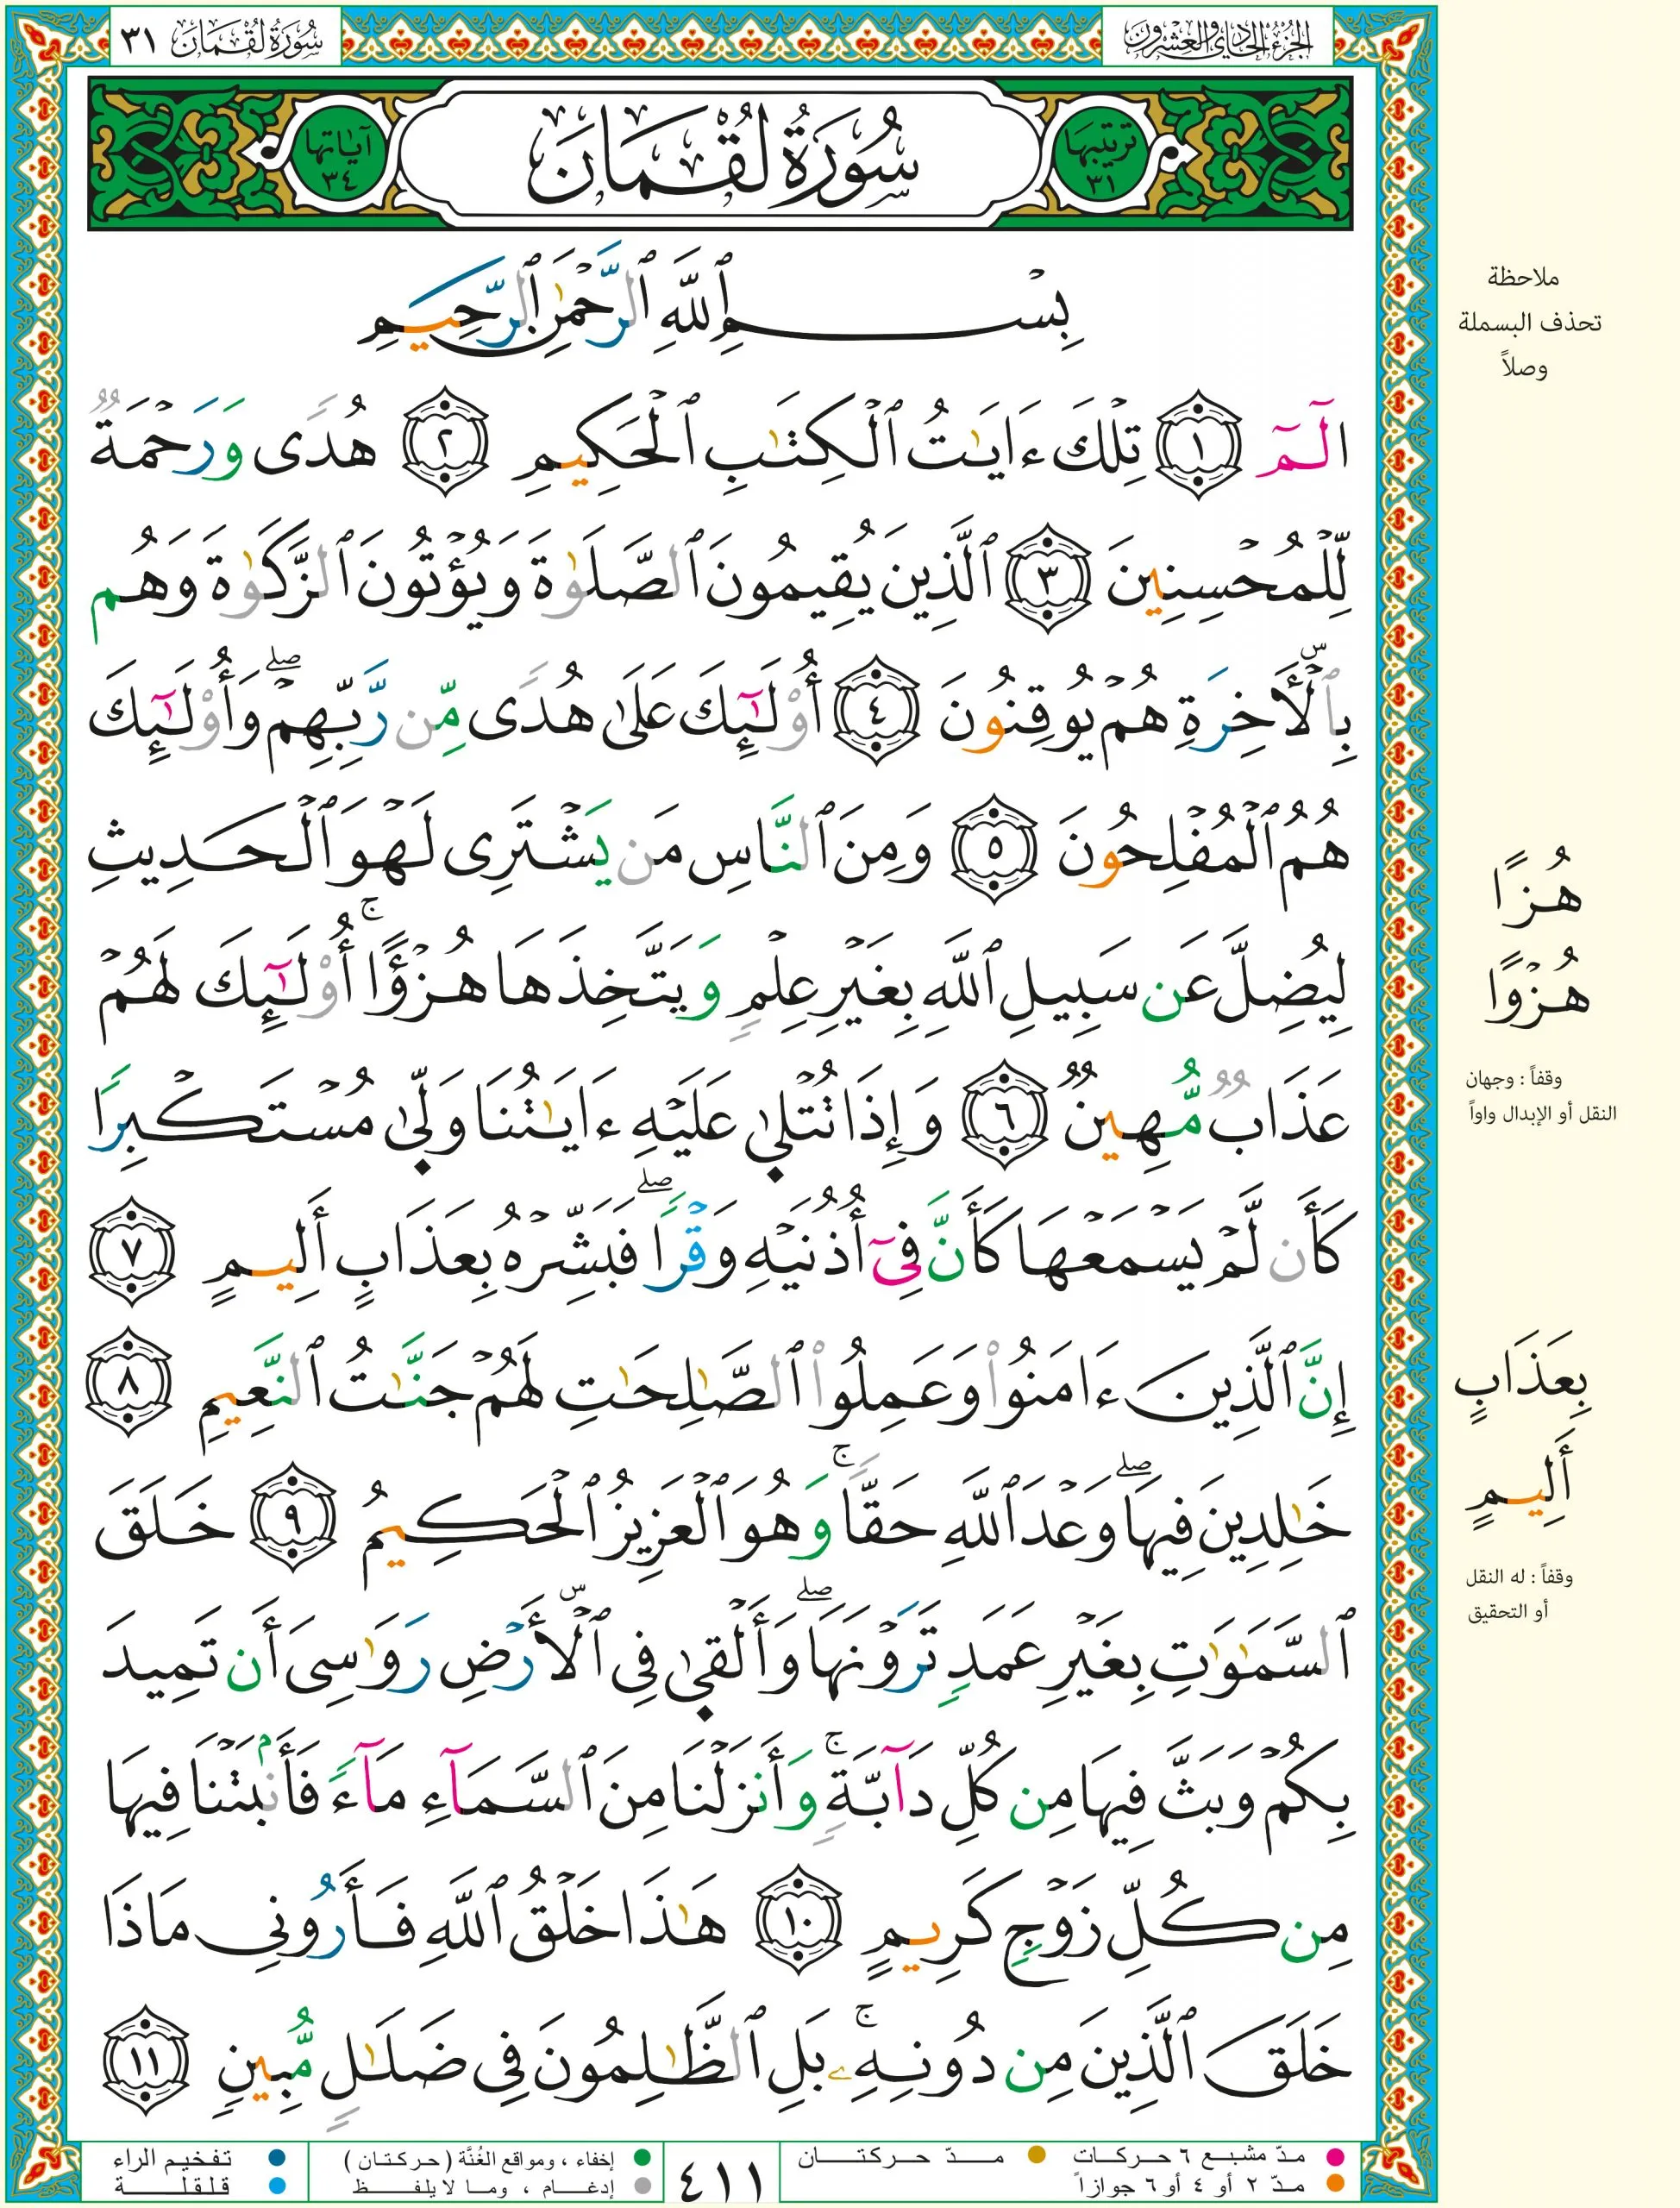 الجزء الحادي والعشرون
سُورَةُ لُقْمَانَ ٣١
ترتيبها ٣١
سُورَةُ لُقْمَانَ
آياتها ٣٤
بِسْمِ ٱللَّهِ ٱلرَّحْمَٰنِ ٱلرَّحِيمِ
الٓمٓ ١ تِلْكَ ءَايَٰتُ ٱلْكِتَٰبِ ٱلْحَكِيمِ ٢ هُدًى وَرَحْمَةٌ
لِّلْمُحْسِنِينَ ٣ ٱلَّذِينَ يُقِيمُونَ ٱلصَّلَوٰةَ وَيُؤْتُونَ ٱلزَّكَوٰةَ وَهُم
بِٱلْأَخِرَةِ هُمْ يُوقِنُونَ ٤ أُوْلَٰٓئِكَ عَلَىٰ هُدًى مِّن رَّبِّهِمْ ۖ وَأُوْلَٰٓئِكَ
هُمُ ٱلْمُفْلِحُونَ ٥ وَمِنَ ٱلنَّاسِ مَن يَشْتَرِى لَهْوَ ٱلْحَدِيثِ
لِيُضِلَّ عَن سَبِيلِ ٱللَّهِ بِغَيْرِ عِلْمٍ وَيَتَّخِذَهَا هُزْؤًا ۚ أُوْلَٰٓئِكَ لَهُمْ
عَذَابٌ مُّهِينٌ ٦ وَإِذَا تُتْلَىٰ عَلَيْهِ ءَايَٰتُنَا وَلَّىٰ مُسْتَكْبِرًا
كَأَن لَّمْ يَسْمَعْهَا كَأَنَّ فِىٓ أُذُنَيْهِ وَقْرًا ۖ فَبَشِّرْهُ بِعَذَابٍ أَلِيمٍ ٧
إِنَّ ٱلَّذِينَ ءَامَنُوا۟ وَعَمِلُوا۟ ٱلصَّٰلِحَٰتِ لَهُمْ جَنَّٰتُ ٱلنَّعِيمِ ٨
خَٰلِدِينَ فِيهَا ۖ وَعْدَ ٱللَّهِ حَقًّا ۚ وَهُوَ ٱلْعَزِيزُ ٱلْحَكِيمُ ٩ خَلَقَ
ٱلسَّمَٰوَٰتِ بِغَيْرِ عَمَدٍ تَرَوْنَهَا ۖ وَأَلْقَىٰ فِى ٱلْأَرْضِ رَوَٰسِىَ أَن تَمِيدَ
بِكُمْ وَبَثَّ فِيهَا مِن كُلِّ دَآبَّةٍ ۚ وَأَنزَلْنَا مِنَ ٱلسَّمَآءِ مَآءً فَأَنۢبَتْنَا فِيهَا
مِن كُلِّ زَوْجٍ كَرِيمٍ ١٠ هَٰذَا خَلْقُ ٱللَّهِ فَأَرُونِى مَاذَا
خَلَقَ ٱلَّذِينَ مِن دُونِهِۦ ۚ بَلِ ٱلظَّٰلِمُونَ فِى ضَلَٰلٍ مُّبِينٍ ١١
ملاحظة
تحذف البسملة
وصلاً
هُزًا
هُزْوًا
وقفاً : وجهان
النقل أو الإبدال واواً
بِعَذَابٍ
أَلِيمٍ
وقفاً : له النقل
أو التحقيق
مدّ مشبع ٦ حركات
مدّ حركتان
مدّ ٢ أو ٤ أو ٦ جوازاً
٤١١
إخفاء ، ومواقع الغُنَّة (حركتان)
إدغام ، وما لا يلفظ
تفخيم الراء
قلقلة